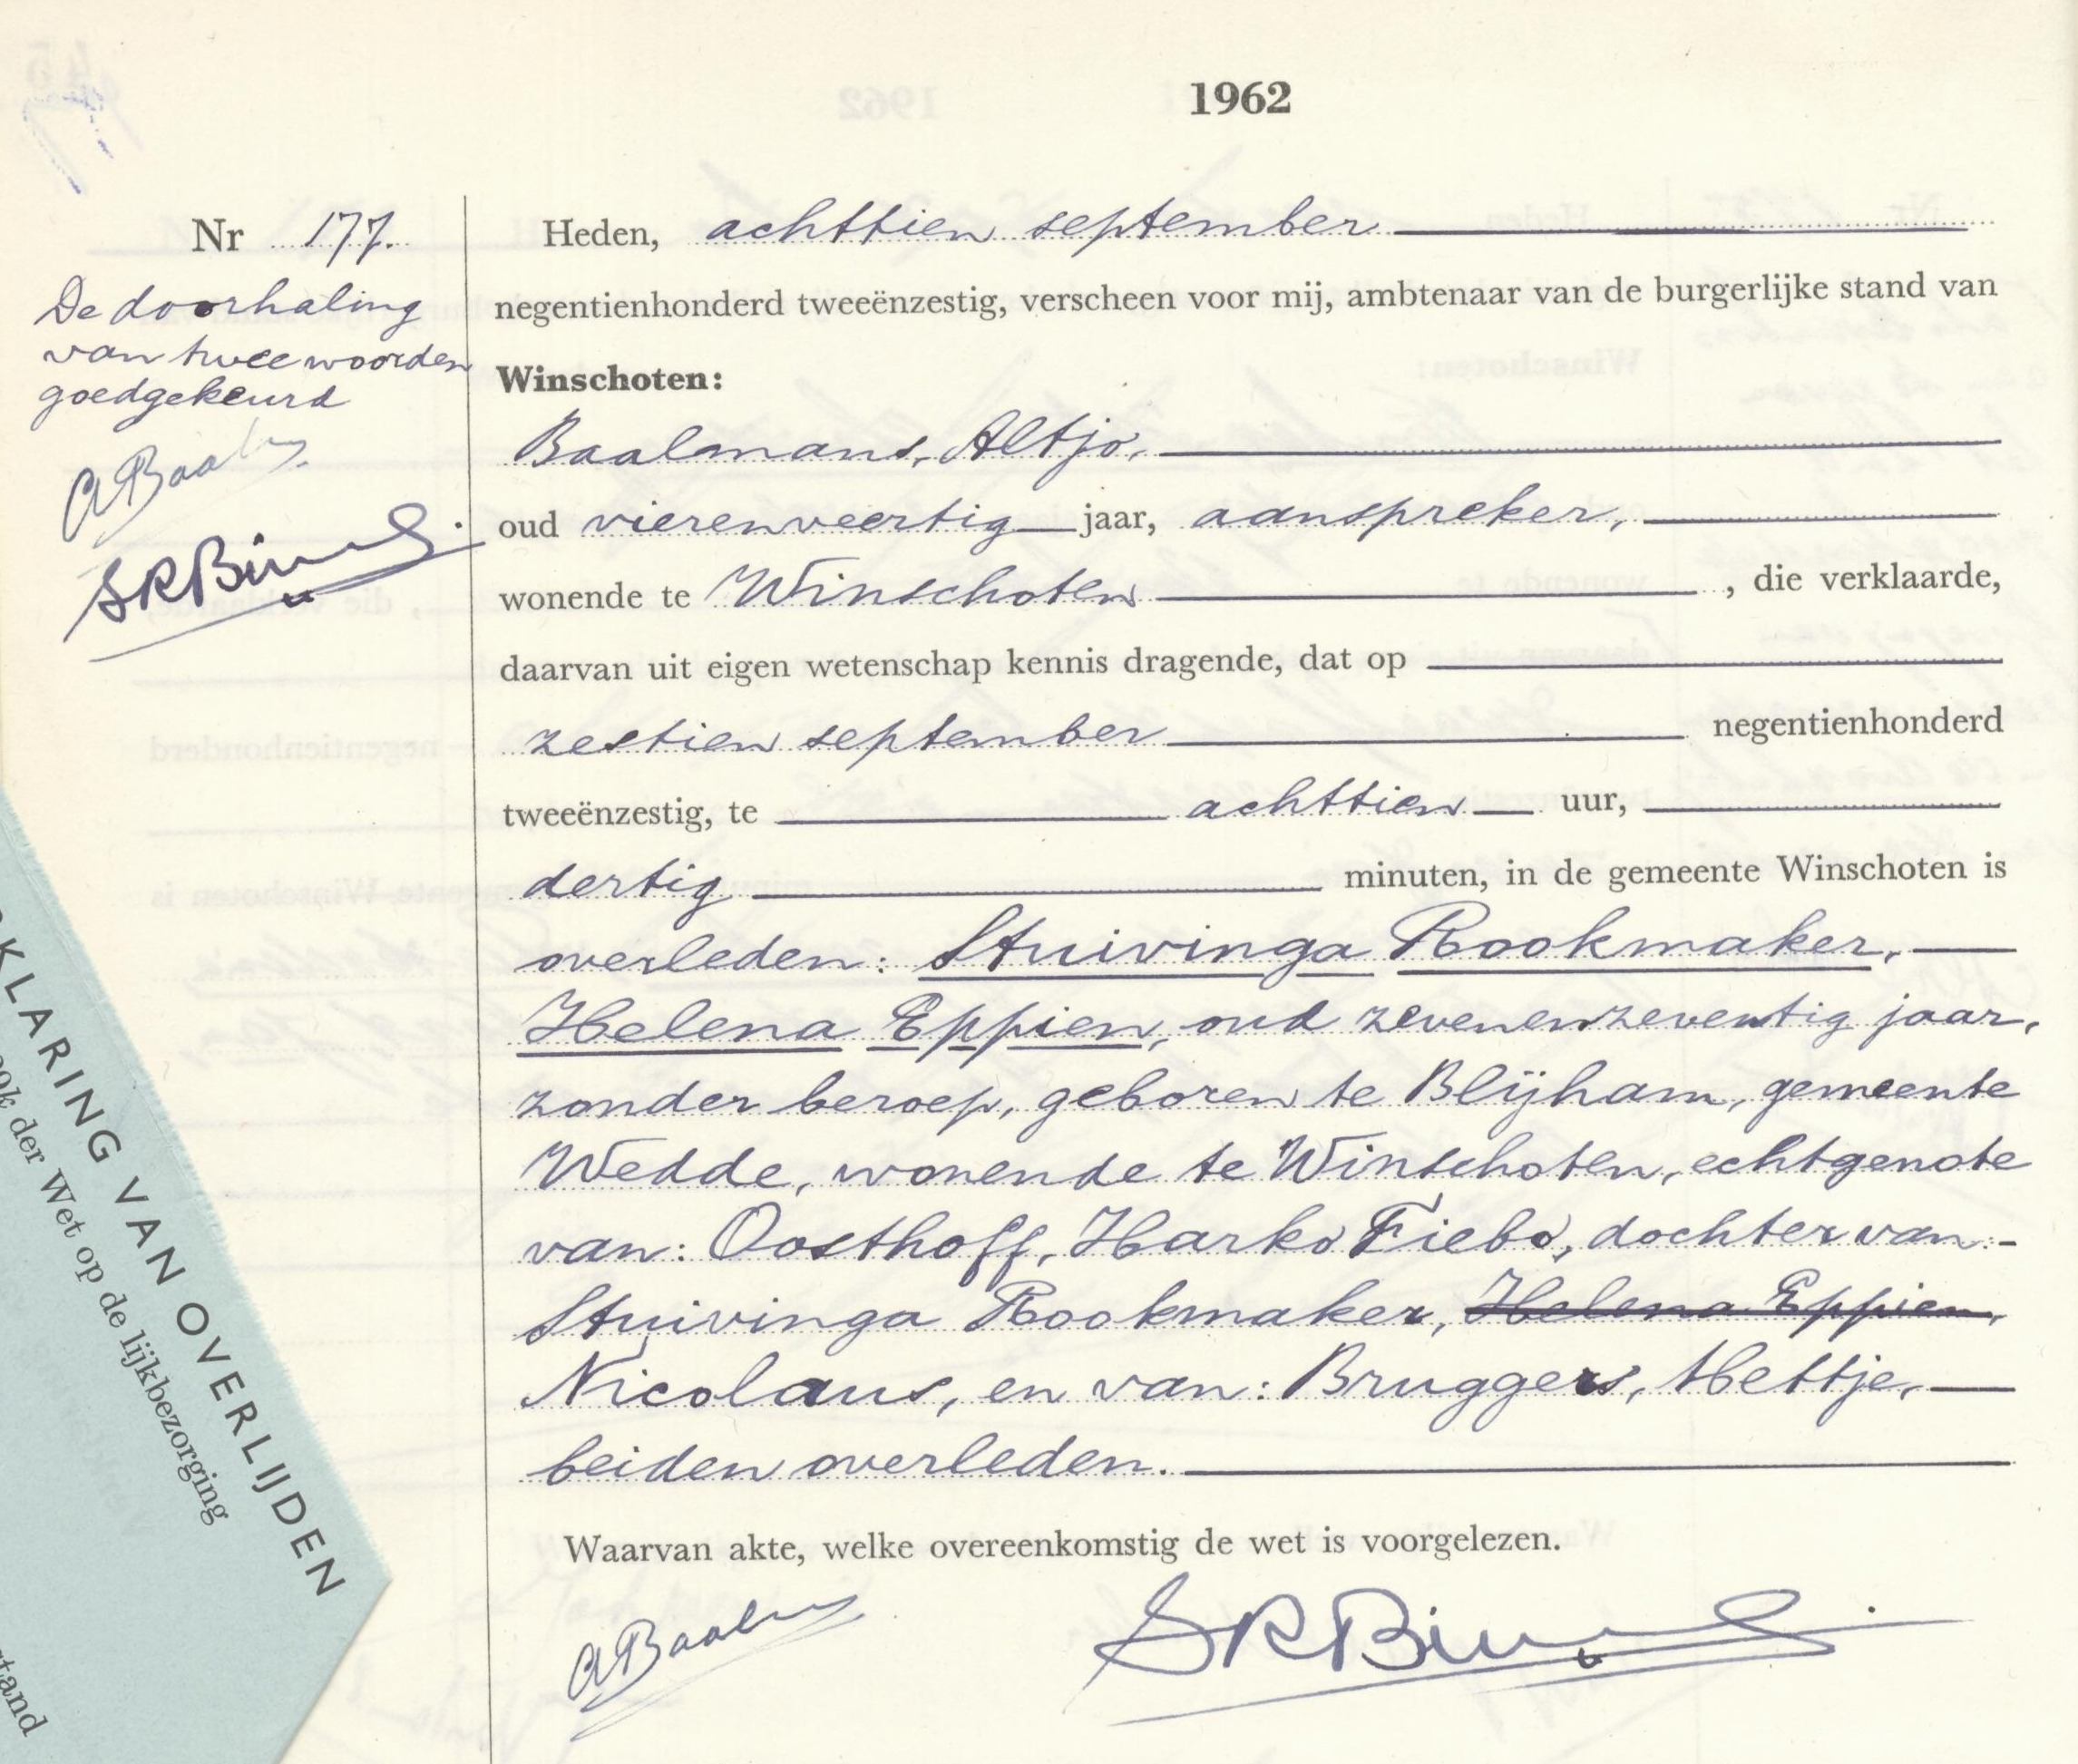 1962
Nr 177.
De doorhaling
van twee woorden
goedgekeurd
ABaal
SRB
Heden, achttien september
negentienhonderd tweeënzestig, verscheen voor mij, ambtenaar van de burgerlijke stand van
Winschoten:
Baalmans, Altjo,
oud vierenveertig jaar, aanspreker,
wonende te Winschoten, die verklaarde,
daarvan uit eigen wetenschap kennis dragende, dat op
zestien september negentienhonderd
tweeënzestig, te achttien uur,
dertig minuten, in de gemeente Winschoten is
overleden: Stuivinga Rookmaker,
Helena Eppien, oud zevenenzeventig jaar,
zonder beroep, geboren te Blijham, gemeente
Wedde, wonende te Winschoten, echtgenote
van: Oosthoff, Harko Fiebo, dochter van:-
Stuivinga Rookmaker, Helena Eppien,
Nicolaus, en van: Bruggers, Hettje,
beiden overleden.
Waarvan akte, welke overeenkomstig de wet is voorgelezen.
ABaal
SRB
KLARING VAN OVERLIJDEN
ook der Wet op de lijkbezorging
tand